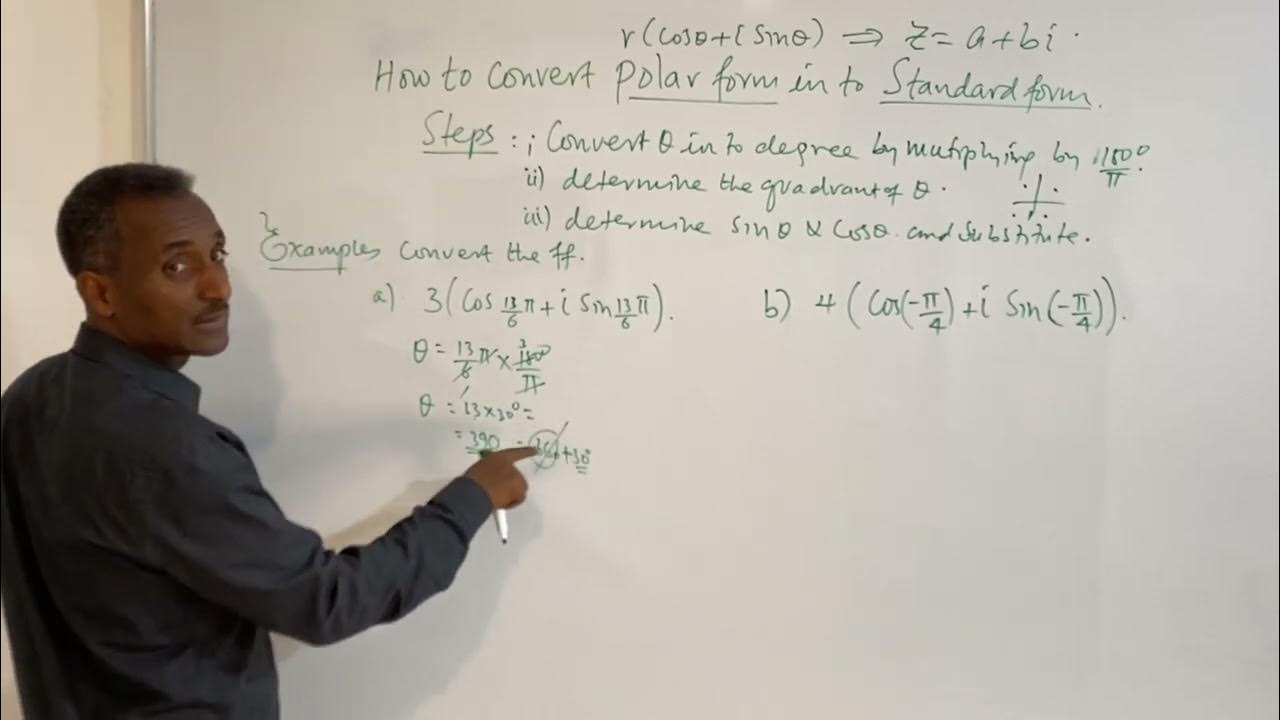 r(cosθ+i sinθ) ⇒ z=a+bi.
How to convert polar form in to Standard form.
Steps : i Convert θ in to degree by mutiplying by 180°/π.
ii) determine the quadrant of θ.
iii) determine sinθ & cosθ. and Substitute.
Examples Convert the ff.
a) 3(Cos 13/6 π + i Sin 13/6 π).
b) 4(Cos(-π/4) + i Sin(-π/4)).
θ = 13/6 π × 180°/π
3
1
θ = 13×30° =
= 390 = 360+30°